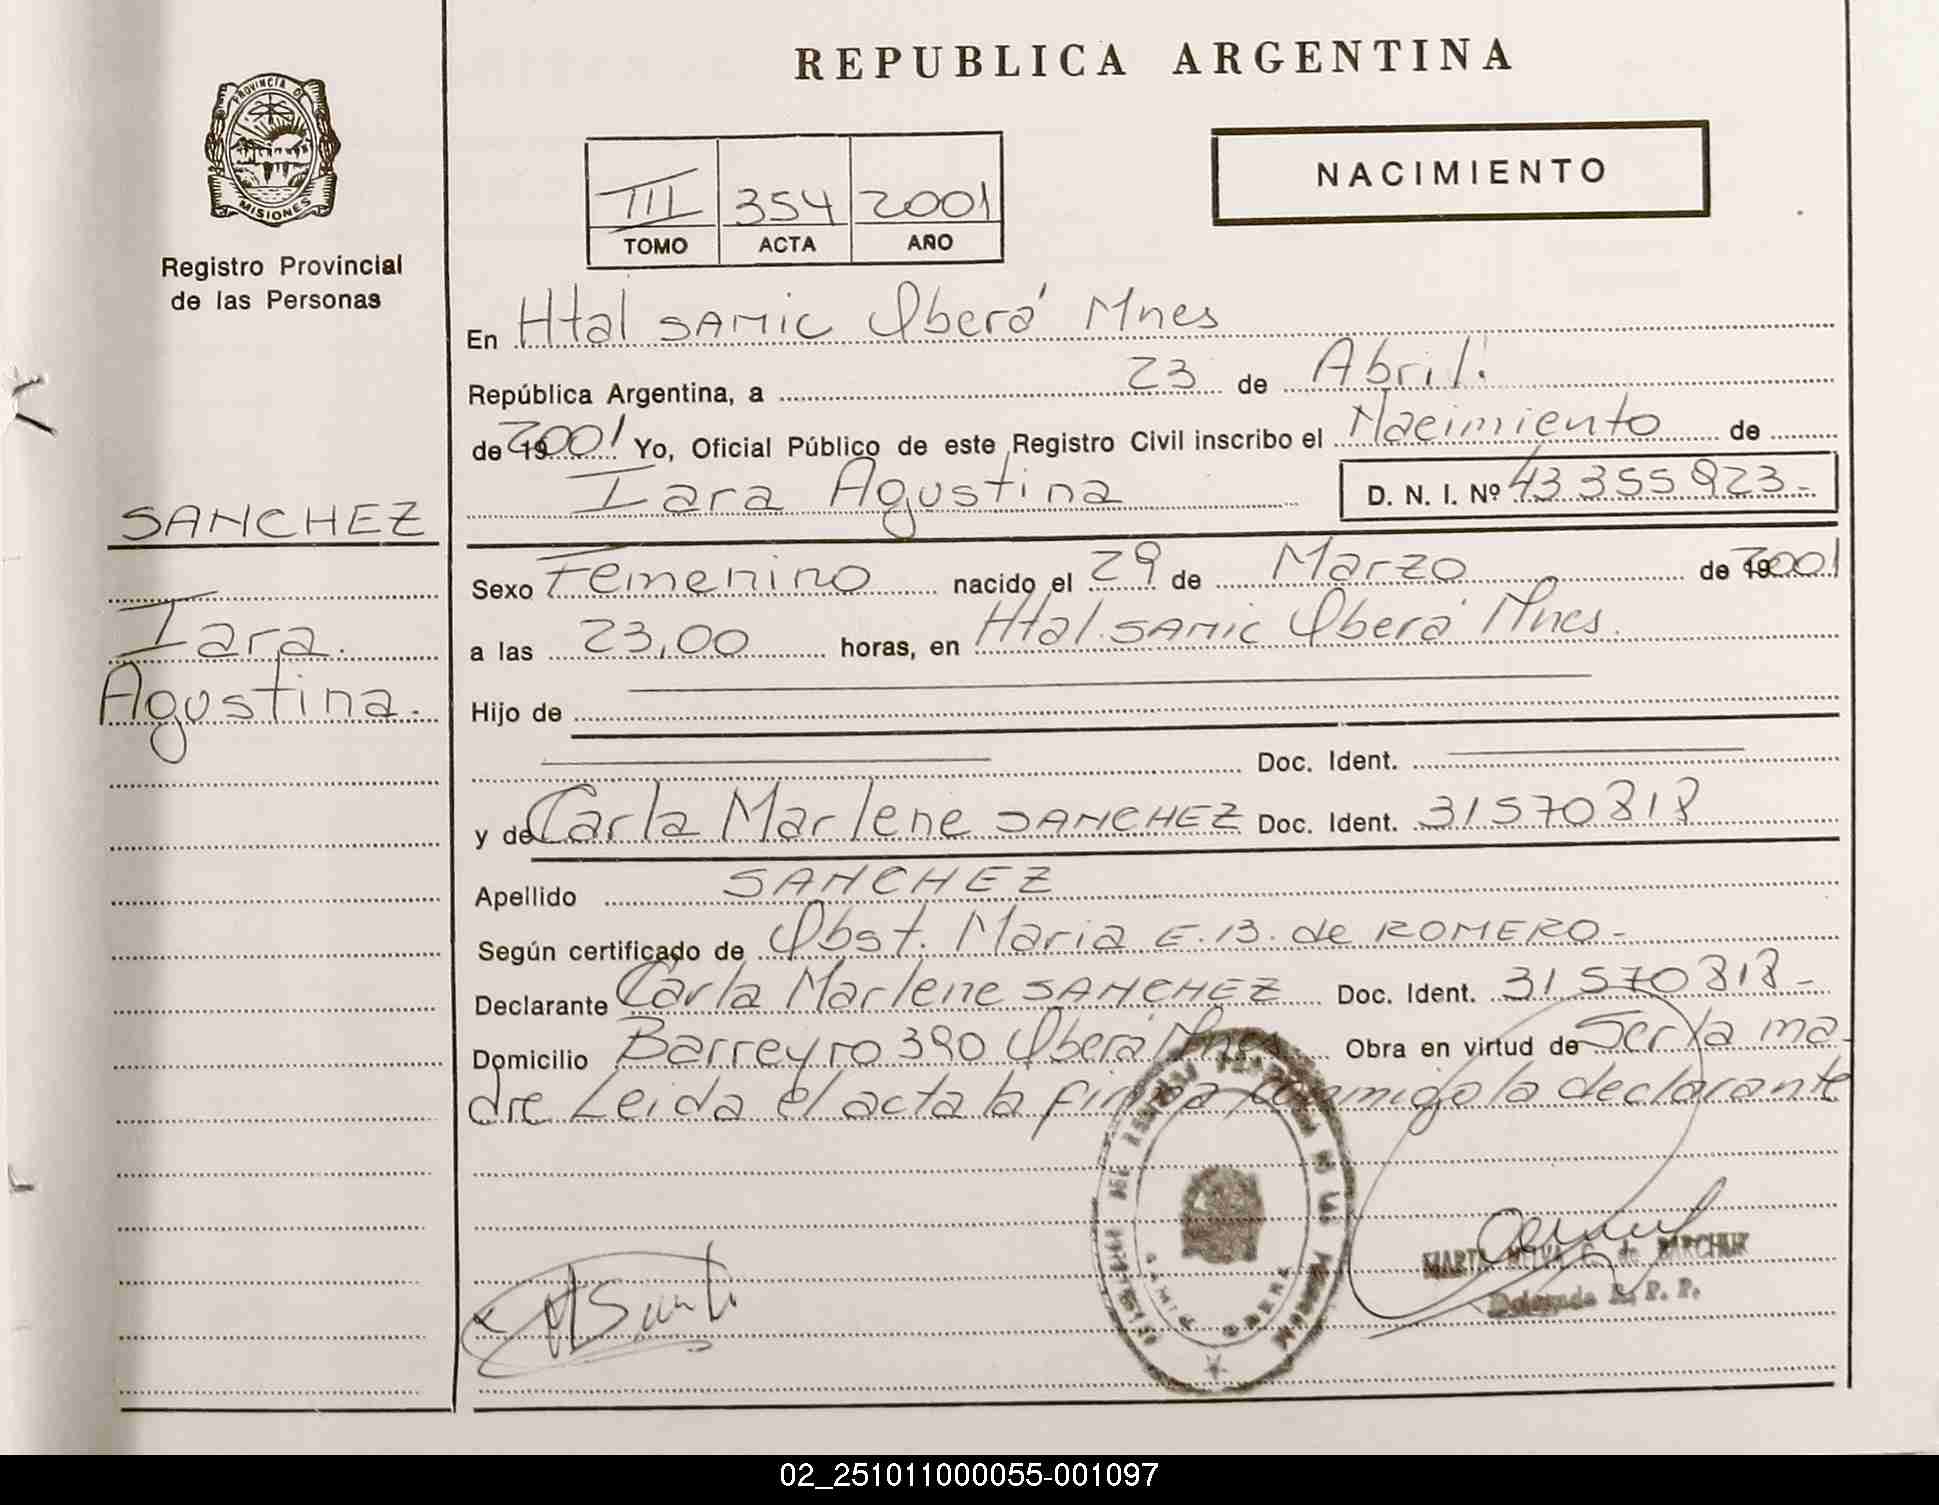 REPUBLICA ARGENTINA
PROVINCIA D
MISIONES
Registro Provincial
de las Personas
III 354 2001
TOMO ACTA AÑO
NACIMIENTO
En Htal SAMIC Oberá Mnes
República Argentina, a 23 de Abril.
de 192001 Yo, Oficial Público de este Registro Civil inscribo el Nacimiento de
Iara Agustina D. N. I. Nº 43 355 923-
SANCHEZ
Iara.
Agustina.
Sexo Femenino nacido el 29 de Marzo de 192001
a las 23,00 horas, en Htal. SAMIC Oberá Mnes.
Hijo de
Doc. Ident.
y de Carla Marlene SANCHEZ Doc. Ident. 31570818
Apellido SANCHEZ
Según certificado de Obst. Maria E. B. de ROMERO-
Declarante Carla Marlene SANCHEZ Doc. Ident. 31 570 818-
Domicilio Barreyro 390 Oberá Mnes Obra en virtud de Ser la ma-
dre Leida el acta la firma conmigo la declarante
SAMIC OBERA
MARTA C. de BARCHUK
Delegada R. P. P.
02_251011000055-001097